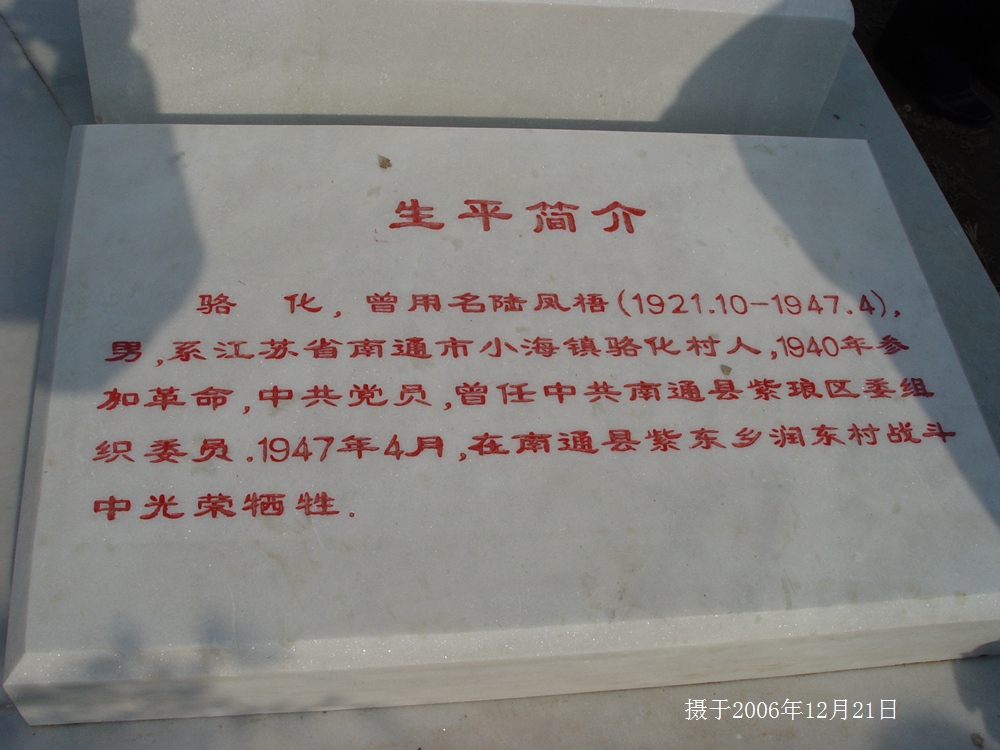 生平简介
骆 化，曾用名陆凤梧(1921.10-1947.4)，
男，系江苏省南通市小海镇骆化村人，1940年参
加革命，中共党员，曾任中共南通县紫琅区委组
织委员．1947年4月，在南通县紫东乡润东村战斗
中光荣牺牲．
摄于2006年12月21日